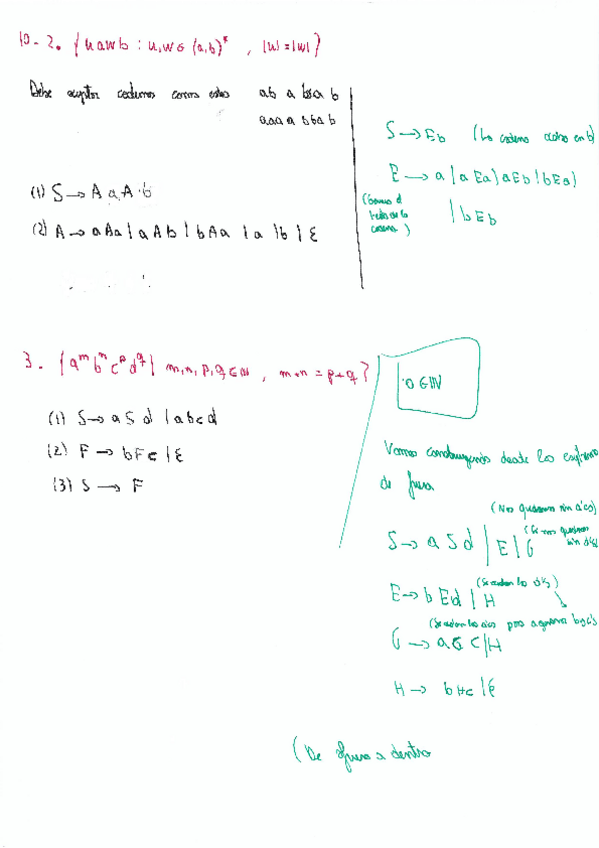 10-2. { u a w b : u, w ∈ (a,b)* , |u| = |w| }
Debe aceptar cadenas como estas ab a bba b
aaa a bba b
(1) S → A a A · b
(2) A → aAa | aAb | bAa | a | b | ε
S → Eb (La cadena acaba en b)
E → a | aEa | aEb | bEa |
| bEb
3. {a^m b^n c^p d^q | m, n, p, q ∈ ℕ, m+n = p+q}
(1) S → a S d | abcd
(2) F → bFc | ε
(3) S → F
0 ∈ ℕ
Vamos construyendo desde los extremos
de fuera
(Nos quedamos sin a's)
S → a S d | E | G
(Si nos quedamos sin d's)
E → b Ed | H
(Se acaban las d's)
G → aG c | H
H → bHc | ε
(De fuera a dentro